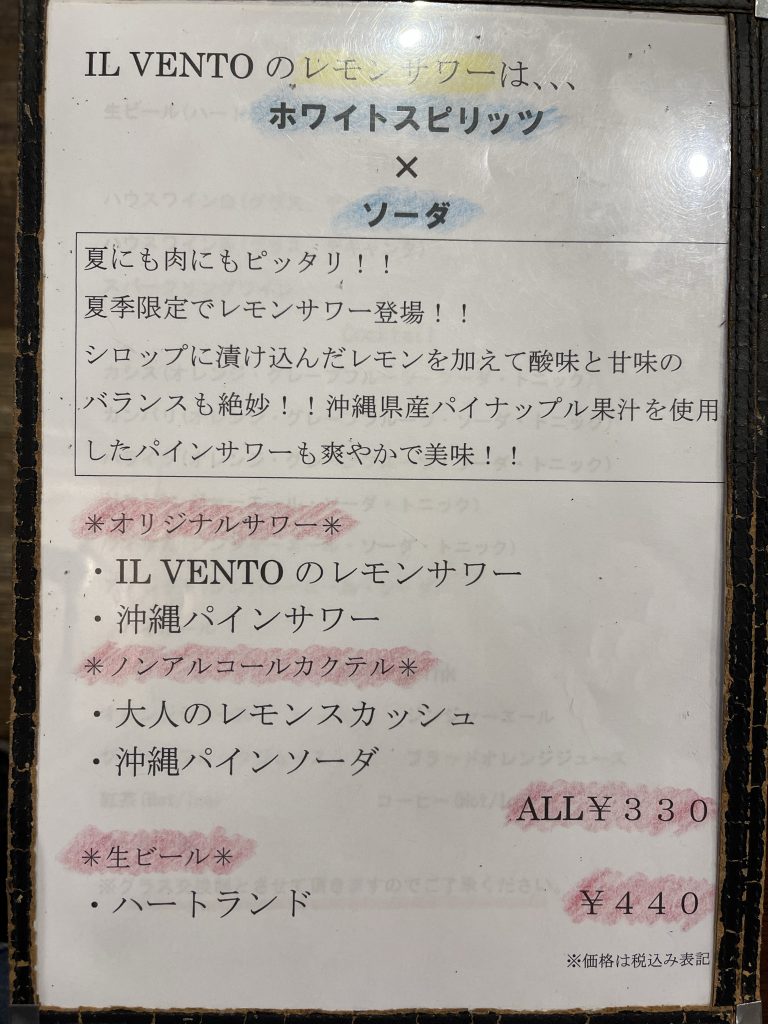 IL VENTO のレモンサワーは、、、
ホワイトスピリッツ
×
ソーダ
夏にも肉にもピッタリ！！
夏季限定でレモンサワー登場！！
シロップに漬け込んだレモンを加えて酸味と甘味の
バランスも絶妙！！沖縄県産パイナップル果汁を使用
したパインサワーも爽やかで美味！！
＊オリジナルサワー＊
・IL VENTO のレモンサワー
・沖縄パインサワー
＊ノンアルコールカクテル＊
・大人のレモンスカッシュ
・沖縄パインソーダ
ALL￥３３０
＊生ビール＊
・ハートランド ￥４４０
※価格は税込み表記